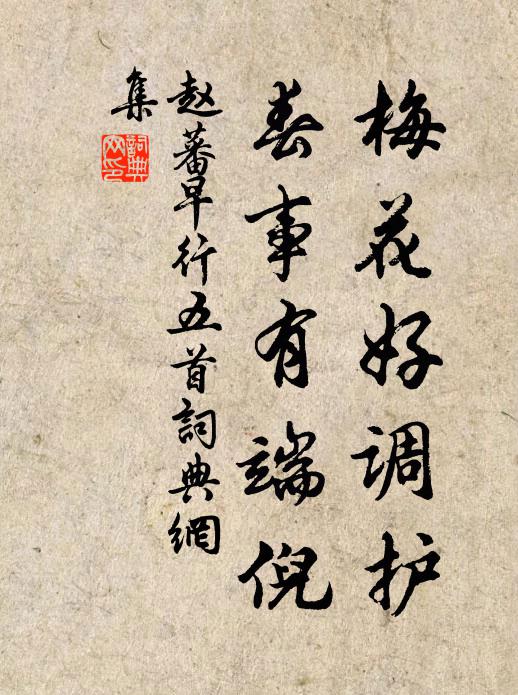 梅花好调护
春事有端倪
赵蕃早行五首詞典網
集
詞典
网印